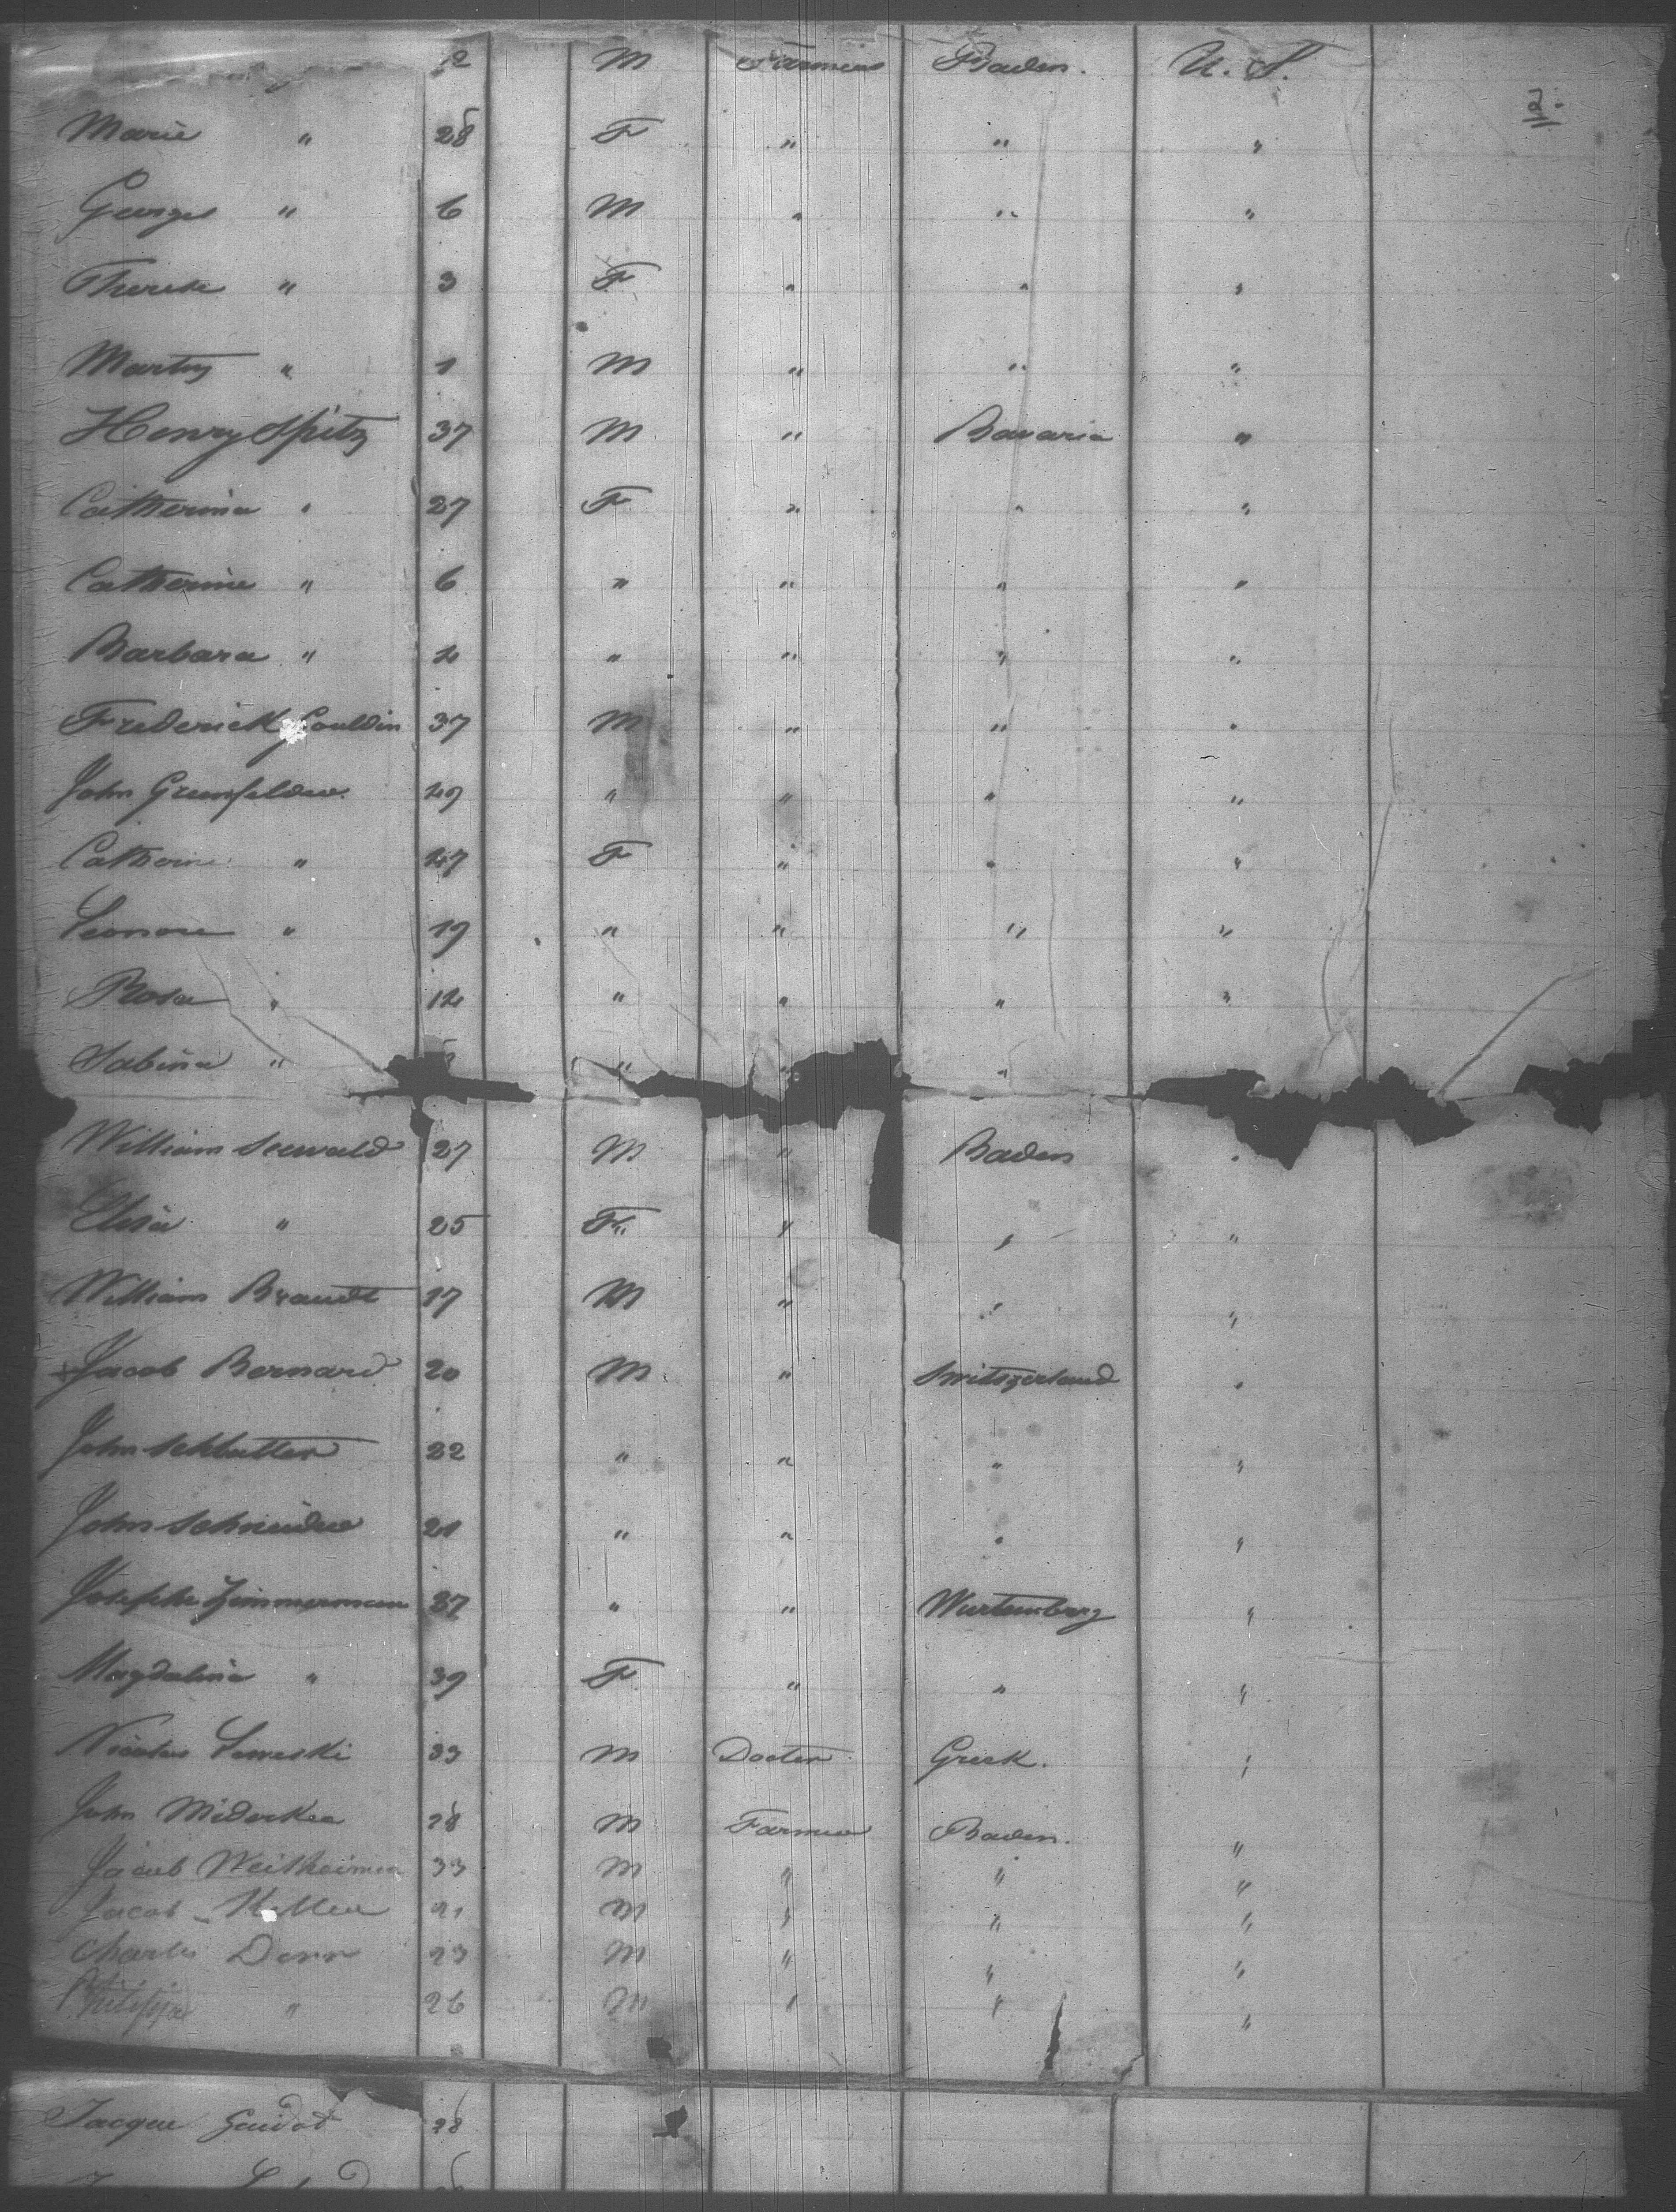 2 M Farmer Baden. U. S.
12.
Marie " 28 F " " "
George " 6 M " " "
Therese " 3 F " " "
Martin " 1 M " " "
Henry Spitz 37 M " Bavaria "
Catherina " 27 F " " "
Catherine " 6 " " " "
Barbara " 4 " " " "
Frederick Gouldin 37 M " " "
John Grunfelder 49 " " " "
Catherine " 47 F " " "
Leonore " 19 " " " "
Rosa " 12 " " " "
Sabina " " " "
William Seewald 27 M " Baden "
Elisa " 25 F " " "
William Brandt 17 M " " "
Jacob Bernard 20 M " Switzerland "
John Schlatter 22 " " " "
John Schneider 21 " " " "
Joseph Zimmerman 37 " " Wurtemberg "
Magdalina " 39 F " " "
Nicolas 33 M Docter Greek. "
John 28 M Farmer Baden. "
Jacob Weitheimer 33 M " " "
Jacob Keller 21 M " " "
Charles Dorr 23 M " " "
Philippe " 26 M " " "
Jacque Guidot 28